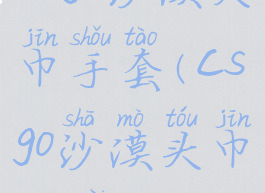 jīn shǒu tào
巾手套(CS
shā mò tóu jīn
go沙漠头巾